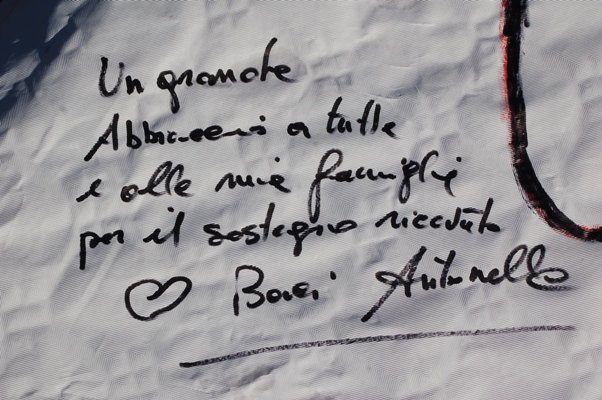 Un grande
Abbraccio a tutte
e alle mie famiglie
per il sostegno ricevuto
♡ Baci Antonello